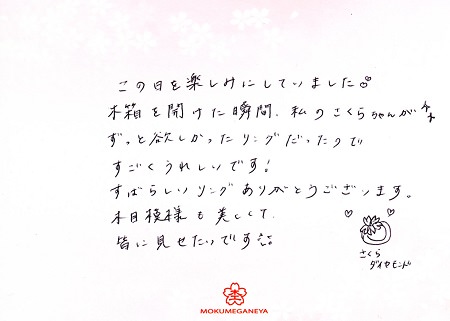 この日を楽しみにしていました♪
木箱を開けた瞬間、私のさくらちゃんが
ずっと欲しかったリングだったので
すごくうれしいです!
すばらしいリングありがとうございます。
木目模様も美しくて、
皆に見せたいです
さくら
ダイヤモンド
MOKUMEGANEYA